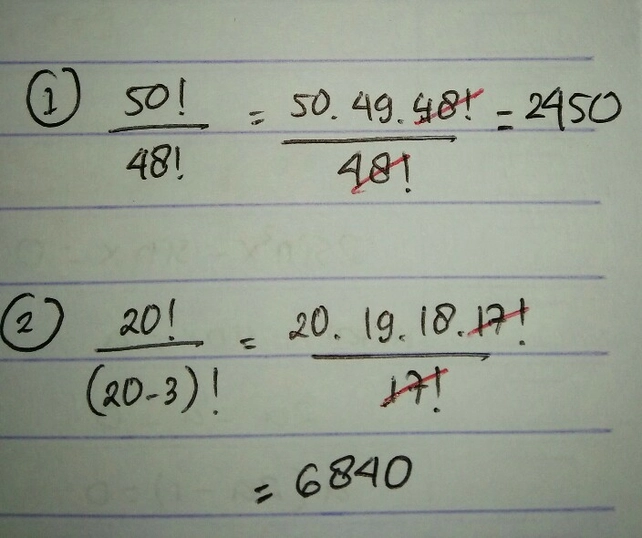 ① 50!/48! = 50. 49. 48!/48! = 2450
② 20!/(20-3)! = 20. 19. 18. 17!/17!
= 6840